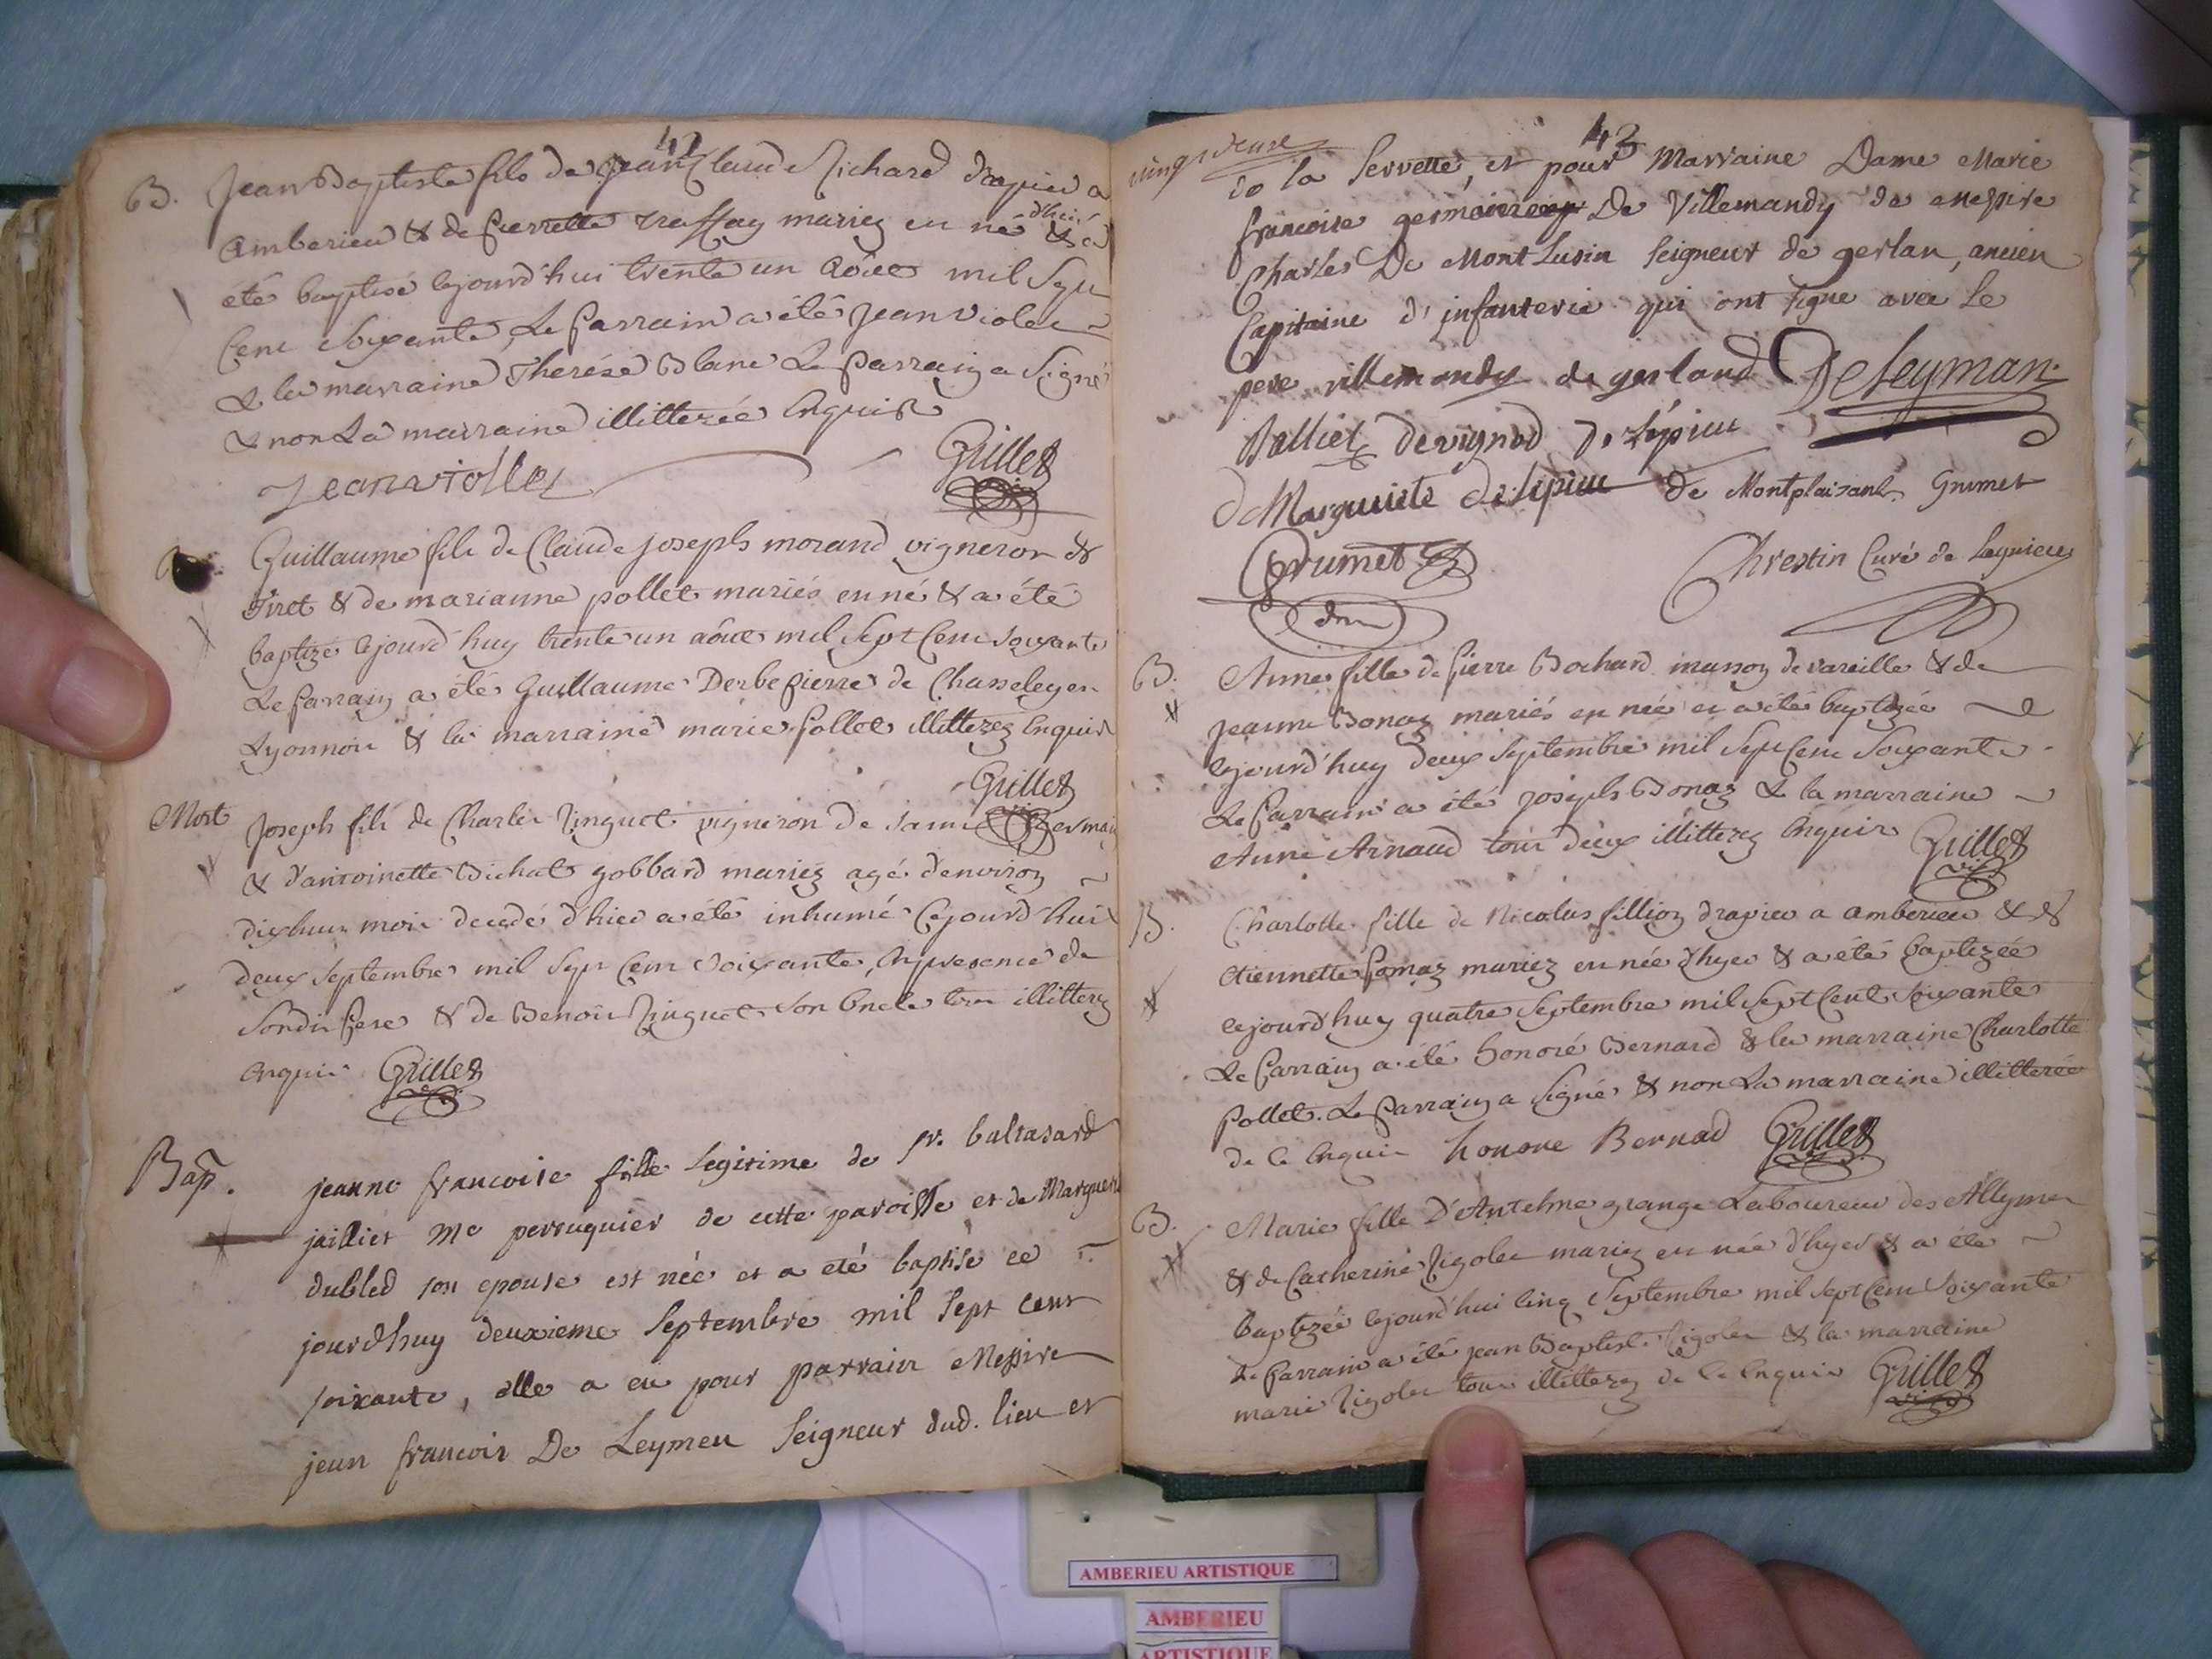 42
B. Jean Baptiste fils de Jean Claude Richard drapier a
Amberieu & de Pierrette mariez est né d'hier & a
été baptisé cejourd'hui trente un Aôut mil Sept
Cent Soixante, Le Parrain a été Jean Violet
& la marraine Therése Blanc Le Parrain a Signé
& non La marraine illitterée Enquise
Jean viollet Grillet
Guillaume fils de Claude Joseph morand vigneron de
Tiret & de marianne pollet mariés est né & a été
baptizé cejourd'huy trente un aôut mil Sept Cent soixante
Le Parrain a été Guillaume Derbepierre de Chasseley en
Lyonnois & la marraine marie Pollet illitterez Enquis
Grillet
Mort Joseph fils de Charles vigneron de saint Germain
& d'antoinette Bichat gobbard mariez agé d'environ
dixhuit mois decedé d'hier a été inhumé Cejourd'hui
deux Septembre mil Sept Cent Soixante, En presence de
Sondit Pere & de Benoit son Oncle tous illitterez
Enquis Grillet
Bap. jeanne francoise fille legitime de sr. baltasard
jailliet Me perruquier de cette paroisse et de Marguerite
dubled son epouse est née et a eté baptisé ce
jourdhuy deuxieme Septembre mil Sept cent
soixante, elle a eu pour parrain Messire
jean francois De Leymen Seigneur dud. lieu et
43
de la Servette, et pour Marraine Dame Marie
francoise germaine De Villemandy de Messire
Charles De Mont Lusin Seigneur de gerlan, ancien
Capitaine d'infanterie qui ont signé avec Le
pere villemandy de gerland De Leyman
Balliet devignod de Lépieu
de Marguiete de Lépieu de Montplaisant Grumet
Grumet Chrestin Curé de Lagnieu
B. Anne fille de Pierre Bochard masson de vareille & de
Jeanne Bonaz mariés est née et a été baptizée
cejourd'huy deux Septembre mil Sept Cent Soixante
Le Parrain a été Joseph Bonaz & la marraine
Anne Arnaud tous deux illitterez Enquis Grillet
B. Charlotte fille de Nicolas fillion drapier a amberieu & d
Etiennette mariez est née d'hyer & a été baptizée
cejourd'huy quatre Septembre mil Sept Cent Soixante
Le Parrain a été honoré Bernard & la marraine Charlotte
Pollet. Le Parrain a Signé & non La marraine illitterée
de ce Enquis honore Bernad Grillet
B. Marie fille D'Antelme grange Laboureur des Allymes
& de Catherine Rigolet mariez est née d'hyer & a été
baptizée cejourd'hui Cinq Septembre mil Sept Cent Soixante
Le Parrain a été jean Baptiste Rigolet & la marraine
marie Rigolet tous illitterez de Ce Enquis Grillet
AMBERIEU ARTISTIQUE
AMBERIEU
ARTISTIQUE